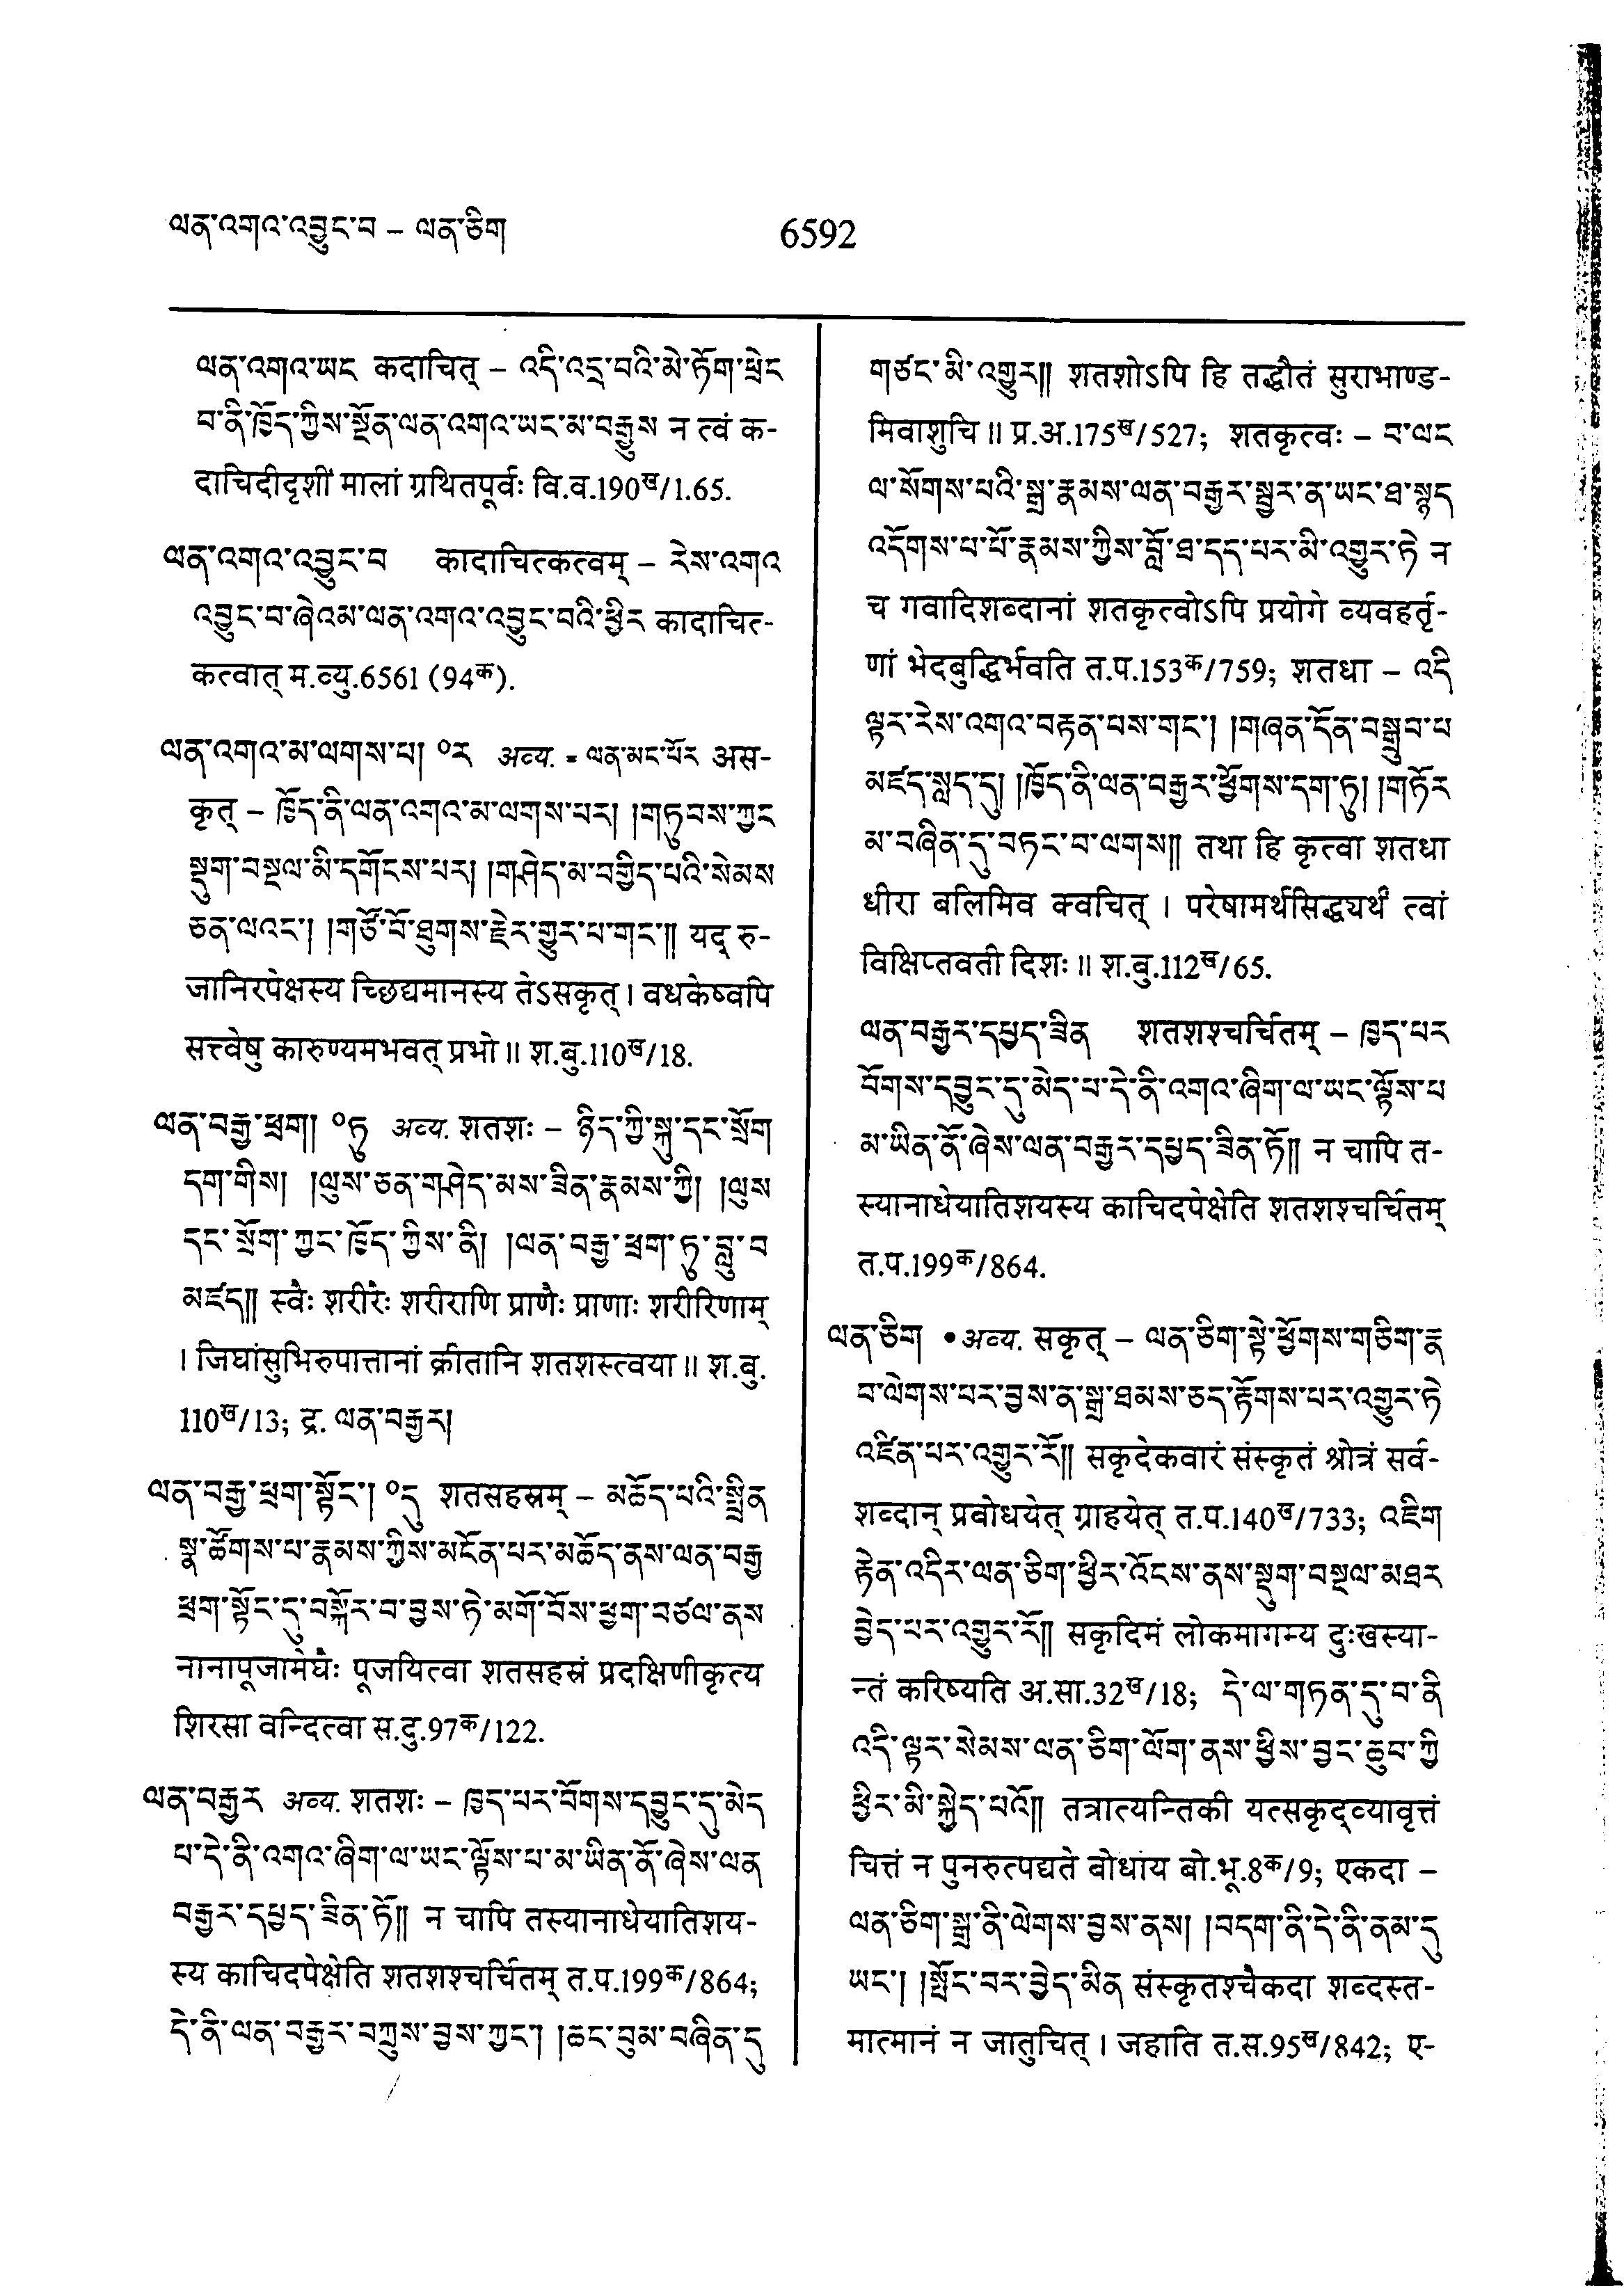 ལན་འགའ་འབྱུང་བ – ལན་ཅིག
6592
ལན་འགའ་ཡང कदाचित् – འདི་འདྲ་བའི་མེ་ཏོག་ཕྲེང
བ་ནི་ཁྱོད་ཀྱིས་སྔོན་ལན་འགའ་ཡང་མ་བརྒྱུས न त्वं क-
दाचिदीदृशीं मालां ग्रथितपूर्वः वि.व.190ख/1.65.
ལན་འགའ་འབྱུང་བ कादाचित्कत्वम् – རེས་འགའ
འབྱུང་བ་ཞེའམ་ལན་འགའ་འབྱུང་བའི་ཕྱིར कादाचित-
कत्वात् म.व्यु.6561 (94क).
ལན་འགའ་མ་ལགས་པ། ०ར अव्य. = ལན་མང་པོར अस-
कृत् – ཁྱོད་ནི་ལན་འགའ་མ་ལགས་པར། །གཏུབས་ཀྱང
སྡུག་བསྔལ་མི་དགོངས་པར། །གཤེད་མ་བགྱིད་པའི་སེམས
ཅན་ལའང་། །གཙོ་བོ་ཐུགས་རྗེར་གྱུར་པ་གང་॥ यद् रु-
जानिरपेक्षस्य च्छिद्यमानस्य तेऽसकृत्। वधकेष्वपि
सत्त्वेषु कारुण्यमभवत् प्रभो॥ श.बु.110ख/18.
ལན་བརྒྱ་ཕྲག། ०ཏུ अव्य. शतशः – ཉིད་ཀྱི་སྐུ་དང་སྲོག
དག་གིས། །ལུས་ཅན་གཤེད་མས་ཟིན་རྣམས་ཀྱི། །ལུས
དང་སྲོག་ཀྱང་ཁྱོད་ཀྱིས་ནི། །ལན་བརྒྱ་ཕྲག་ཏུ་བླུ་བ
མཛད॥ स्वैः शरीरैः शरीराणि प्राणैः प्राणाः शरीरिणाम्
। जिघांसुभिरुपात्तानां क्रीतानि शतशस्त्वया॥ श.बु.
110ख/13; द्र. ལན་བརྒྱར།
ལན་བརྒྱ་ཕྲག་སྟོང་། ०དུ शतसहस्रम् – མཆོད་པའི་སྤྲིན
སྣ་ཚོགས་པ་རྣམས་ཀྱིས་མངོན་པར་མཆོད་ནས་ལན་བརྒྱ
ཕྲག་སྟོང་དུ་བསྐོར་བ་བྱས་ཏེ་མགོ་བོས་ཕྱག་བཙལ་ནས
नानापूजामेघैः पूजयित्वा शतसहस्रं प्रदक्षिणीकृत्य
शिरसा वन्दित्वा स.दु.97क/122.
ལན་བརྒྱར अव्य. शतशः – ཁྱད་པར་བོགས་དབྱུང་དུ་མེད
པ་དེ་ནི་འགའ་ཞིག་ལ་ཡང་ལྟོས་པ་མ་ཡིན་ནོ་ཞེས་ལན
བརྒྱར་དཔྱད་ཟིན་ཏོ॥ न चापि तस्यानाधेयातिशय-
स्य काचिदपेक्षेति शतशश्चर्चितम् त.प.199क/864;
དེ་ནི་ལན་བརྒྱར་བཀྲུས་བྱས་ཀྱང་། །ཆང་བུམ་བཞིན་དུ
གཙང་མི་འགྱུར॥ शतशोऽपि हि तद्धौतं सुराभाण्ड-
मिवाशुचि॥ प्र.अ.175ख/527; शतकृत्वः – བ་ལང
ལ་སོགས་པའི་སྒྲ་རྣམས་ལན་བརྒྱར་སྦྱར་ན་ཡང་ཐ་སྙད
འདོགས་པ་པོ་རྣམས་ཀྱིས་བློ་ཐ་དད་པར་མི་འགྱུར་ཏེ न
च गवादिशब्दानां शतकृत्वोऽपि प्रयोगे व्यवहर्तृ-
णां भेदबुद्धिर्भवति त.प.153क/759; शतधा – འདི
ལྟར་རེས་འགའ་བརྟན་པས་གང་། །གཞན་དོན་བསྒྲུབ་པ
མཛད་སླད་དུ། །ཁྱོད་ནི་ལན་བརྒྱར་ཕྱོགས་དག་ཏུ། །གཏོར
མ་བཞིན་དུ་བཏང་བ་ལགས॥ तथा हि कृत्वा शतधा
धीरा बलिमिव क्वचित्। परेषामर्थसिद्ध्यर्थं त्वां
विक्षिप्तवती दिशः॥ श.बु.112ख/65.
ལན་བརྒྱར་དཔྱད་ཟིན शतशश्चर्चितम् – ཁྱད་པར
བོགས་དབྱུང་དུ་མེད་པ་དེ་ནི་འགའ་ཞིག་ལ་ཡང་ལྟོས་པ
མ་ཡིན་ནོ་ཞེས་ལན་བརྒྱར་དཔྱད་ཟིན་ཏོ॥ न चापि त-
स्यानाधेयातिशयस्य काचिदपेक्षेति शतशश्चर्चितम्
त.प.199क/864.
ལན་ཅིག • अव्य. सकृत् – ལན་ཅིག་སྟེ་ཕྱོགས་གཅིག་རྣ
བ་ལེགས་པར་བྱས་ན་སྒྲ་ཐམས་ཅད་རྟོགས་པར་འགྱུར་ཏེ
འཛིན་པར་འགྱུར་རོ॥ सकृदेकवारं संस्कृतं श्रोत्रं सर्व-
शब्दान् प्रबोधयेत् ग्राहयेत् त.प.140ख/733; འཇིག
རྟེན་འདིར་ལན་ཅིག་ཕྱིར་འོངས་ནས་སྡུག་བསྔལ་མཐར
བྱེད་པར་འགྱུར་རོ॥ सकृदिमं लोकमागम्य दुःखस्या-
न्तं करिष्यति अ.सा.32ख/18; དེ་ལ་གཏན་དུ་བ་ནི
འདི་ལྟར་སེམས་ལན་ཅིག་ལོག་ནས་ཕྱིས་བྱང་ཆུབ་ཀྱི
ཕྱིར་མི་སྐྱེད་པའོ॥ तत्रात्यन्तिकी यत्सकृद्व्यावृत्तं
चित्तं न पुनरुत्पद्यते बोधाय बो.भू.8क/9; एकदा –
ལན་ཅིག་སྒྲ་ནི་ལེགས་བྱས་ནས། །བདག་ནི་དེ་ནི་ནམ་དུ
ཡང་། །སྤོང་བར་བྱེད་མིན संस्कृतश्चैकदा शब्दस्त-
मात्मानं न जातुचित्। जहाति त.स.95ख/842; ए-